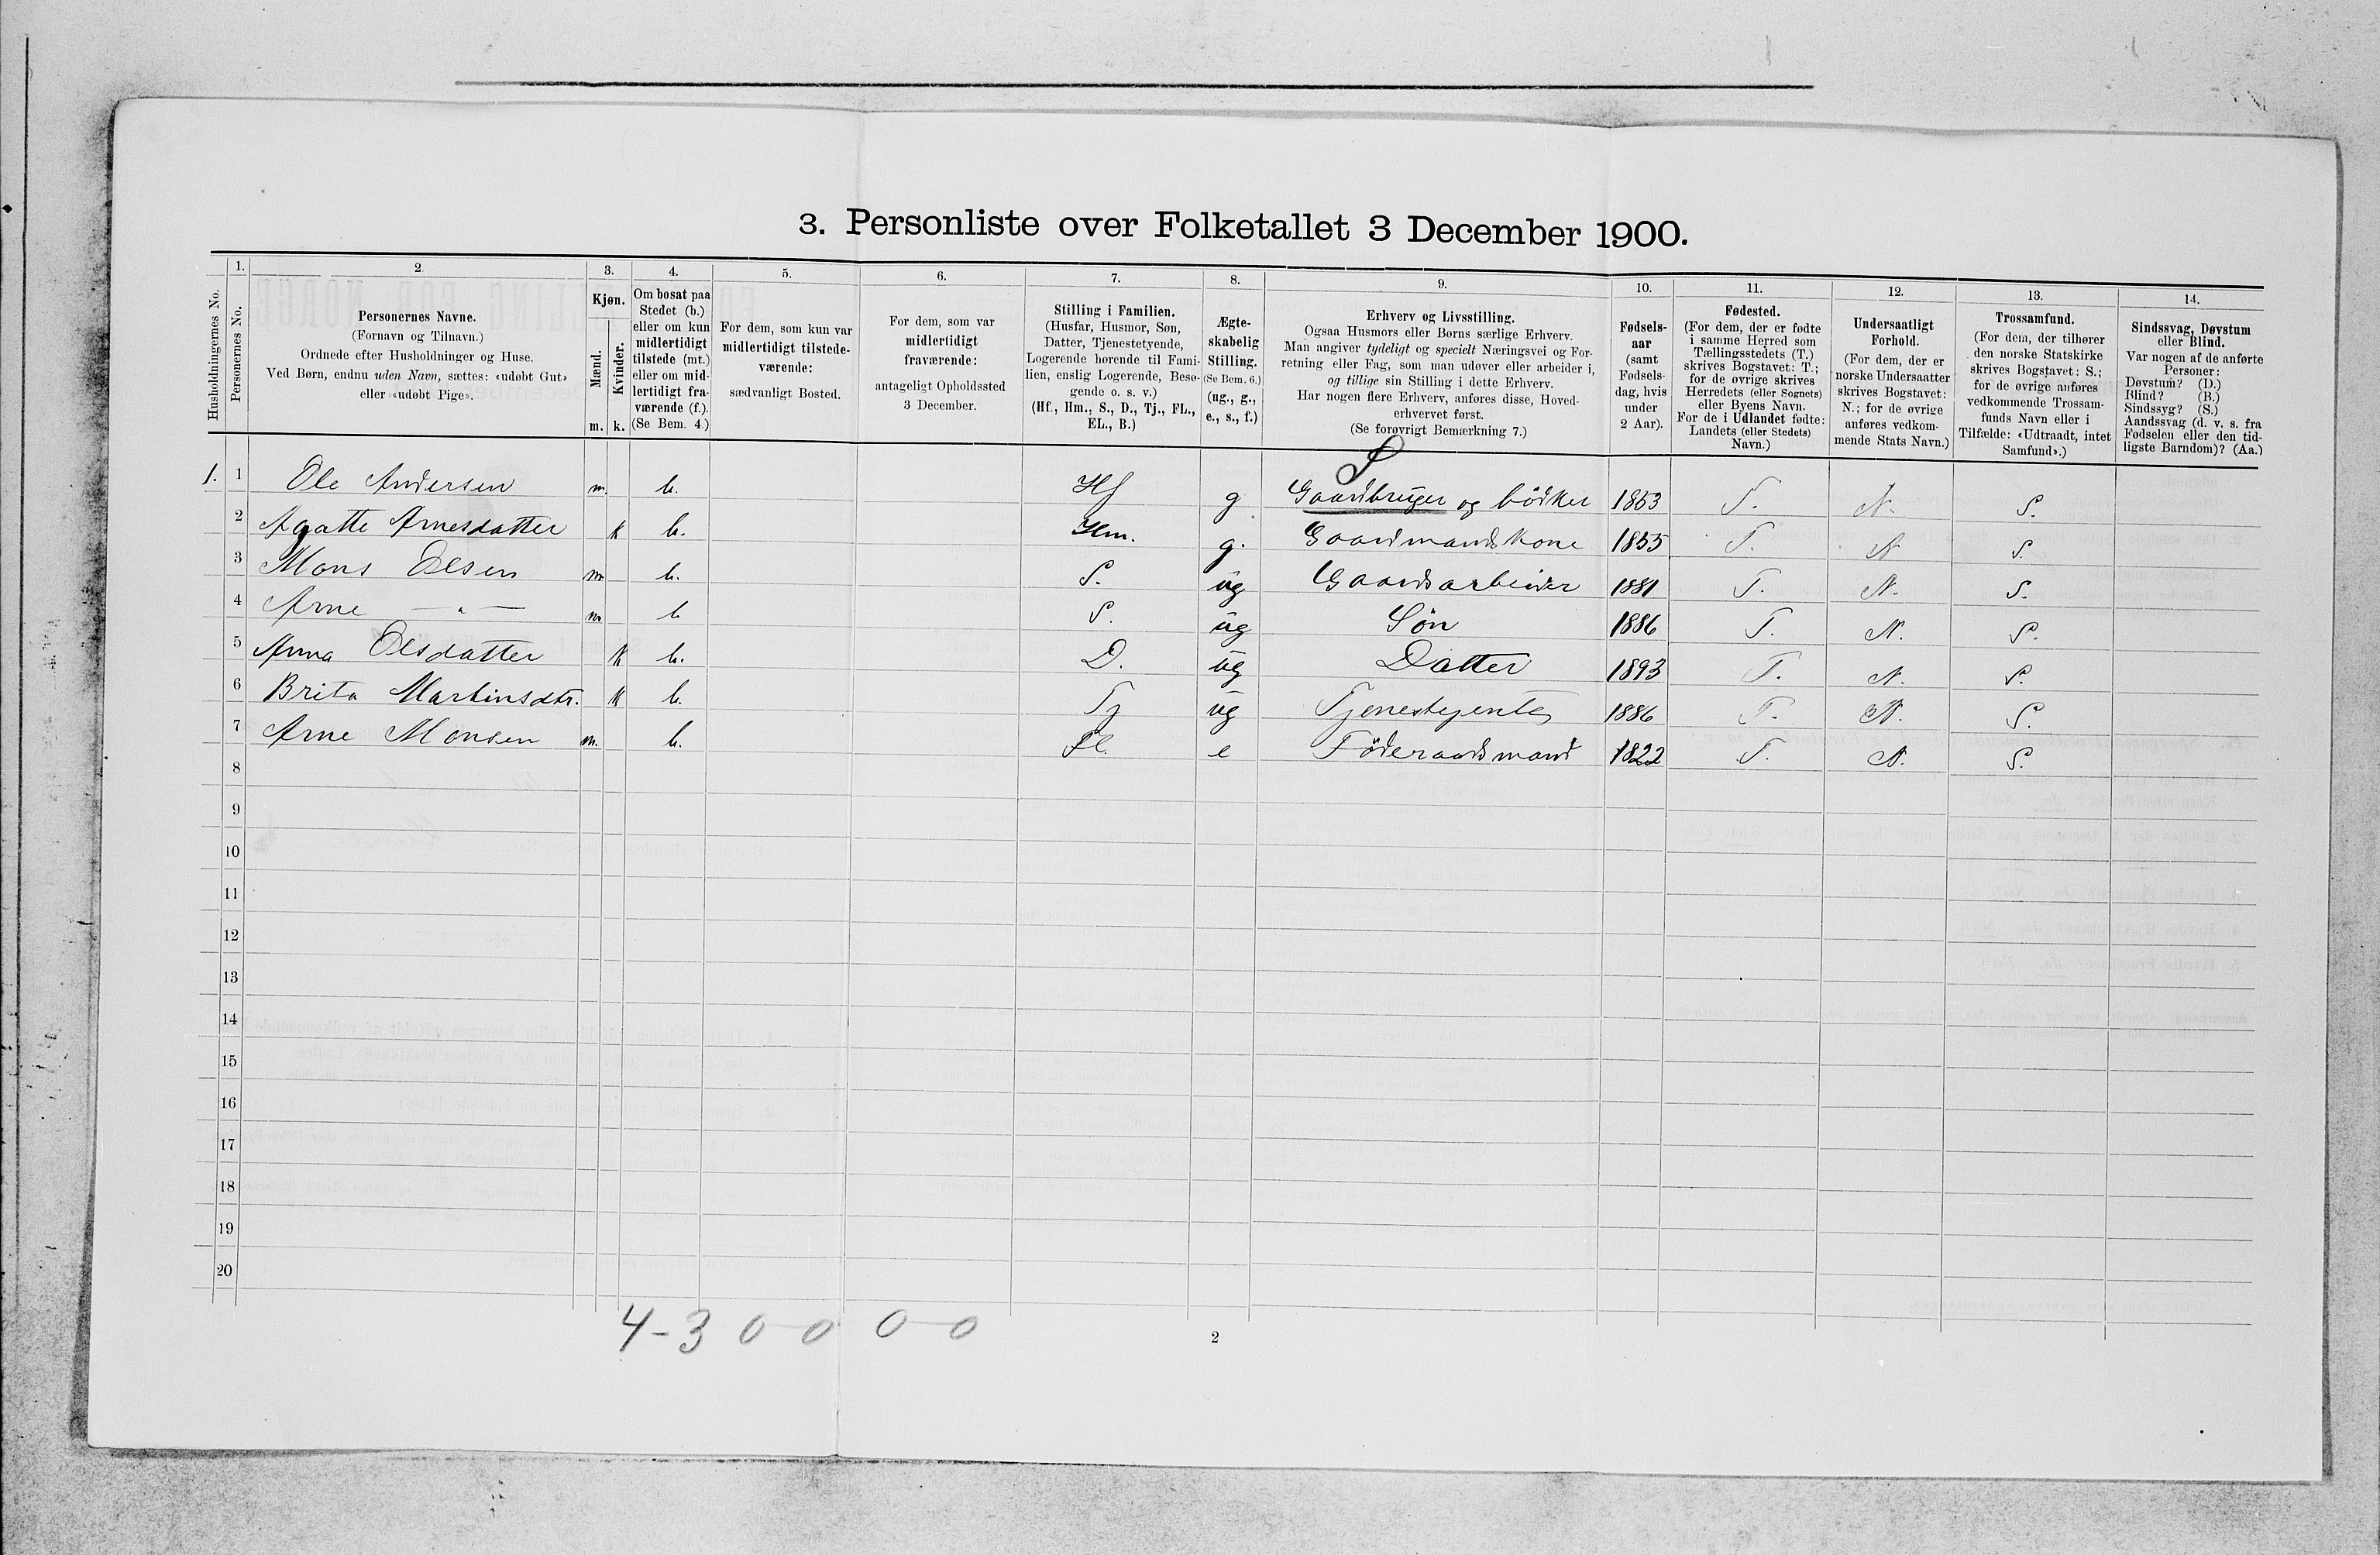 3. Personliste over Folketallet 3 December 1900.
Husholdningernes No.
1.
Personernes No.
2.
Personernes Navne.
(Fornavn og Tilnavn.)
Ordnede efter Husholdninger og Huse.
Ved Børn, endnu uden Navn, sættes: «udøbt Gut»
eller «udøbt Pige».
3.
Kjøn.
Mænd.
Kvinder.
m. k.
4.
Om bosat paa
Stedet (b.)
eller om kun
midlertidigt
tilstede (mt.)
eller om mid-
lertidigt fra-
værende (f.).
(Se Bem. 4.)
5.
For dem, som kun var
midlertidigt tilstede-
værende:
sædvanligt Bosted.
6.
For dem, som var
midlertidigt
fraværende:
antageligt Opholdssted
3 December.
7.
Stilling i Familien.
(Husfar, Husmor, Søn,
Datter, Tjenestetyende,
Logerende hørende til Fami-
lien, enslig Logerende, Besø-
gende o. s. v.)
(Hf., Hm., S., D., Tj., FL.,
EL., B.)
8.
Ægte-
skabelig
Stilling.
(Se Bem. 6.)
(ug., g.,
e., s., f.)
9.
Erhverv og Livsstilling.
Ogsaa Husmors eller Børns særlige Erhverv.
Man angiver tydeligt og specielt Næringsvei og For-
retning eller Fag, som man udøver eller arbeider i,
og tillige sin Stilling i dette Erhverv.
Har nogen flere Erhverv, anføres disse, Hoved-
erhvervet først.
(Se forøvrigt Bemærkning 7.)
10.
Fødsels-
aar
(samt
Fødsels-
dag, hvis
under
2 Aar).
11.
Fødested.
(For dem, der er fødte
i samme Herred som
Tællingsstedets (T.)
skrives Bogstavet: T.;
for de øvrige skrives
Herredets (eller Sognets)
eller Byens Navn.
For de i Udlandet fødte:
Landets (eller Stedets)
Navn.)
12.
Undersaatligt
Forhold.
(For dem, der er
norske Undersaatter
skrives Bogstavet:
N.; for de øvrige
anføres vedkom-
mende Stats Navn.)
13.
Trossamfund.
(For dem, der tilhører
den norske Statskirke
skrives Bogstavet: S.;
for de øvrige anføres
vedkommende Trossam-
funds Navn eller i
Tilfælde: «Udtraadt, intet
Samfund».)
14.
Sindssvag, Døvstum
eller Blind.
Var nogen af de anførte
Personer:
Døvstum? (D.)
Blind? (B.)
Sindssyg? (S.)
Aandssvag (d. v. s. fra
Fødselen eller den tid-
ligste Barndom)? (Aa.)
S
1. 1 Ole Andersen m. b. Hf g Gaardbruger og bödker 1853 T. N. S.
2 Agatte Arnesdatter k b. Hm. g. Gaardmandskone 1855 T. N S.
3 Mons Olsen m b. S. ug Gaardsarbeider 1881 T. N. S.
4 Arne — " — m b S. ug Sön 1886 T. N. S.
5 Anna Olsdatter k b. D. ug Datter 1893 T. N. S.
6 Brita Martinsdtr. k b. Tj ug Tjenestejente 1886 T. N. S.
7 Arne Monsen m. b. Fl. e Föderaadsmand 1822 T. N. S.
8
9
10
11
12
13
14
15
16
17
18
19
20
4-3 0-0 0-0
2